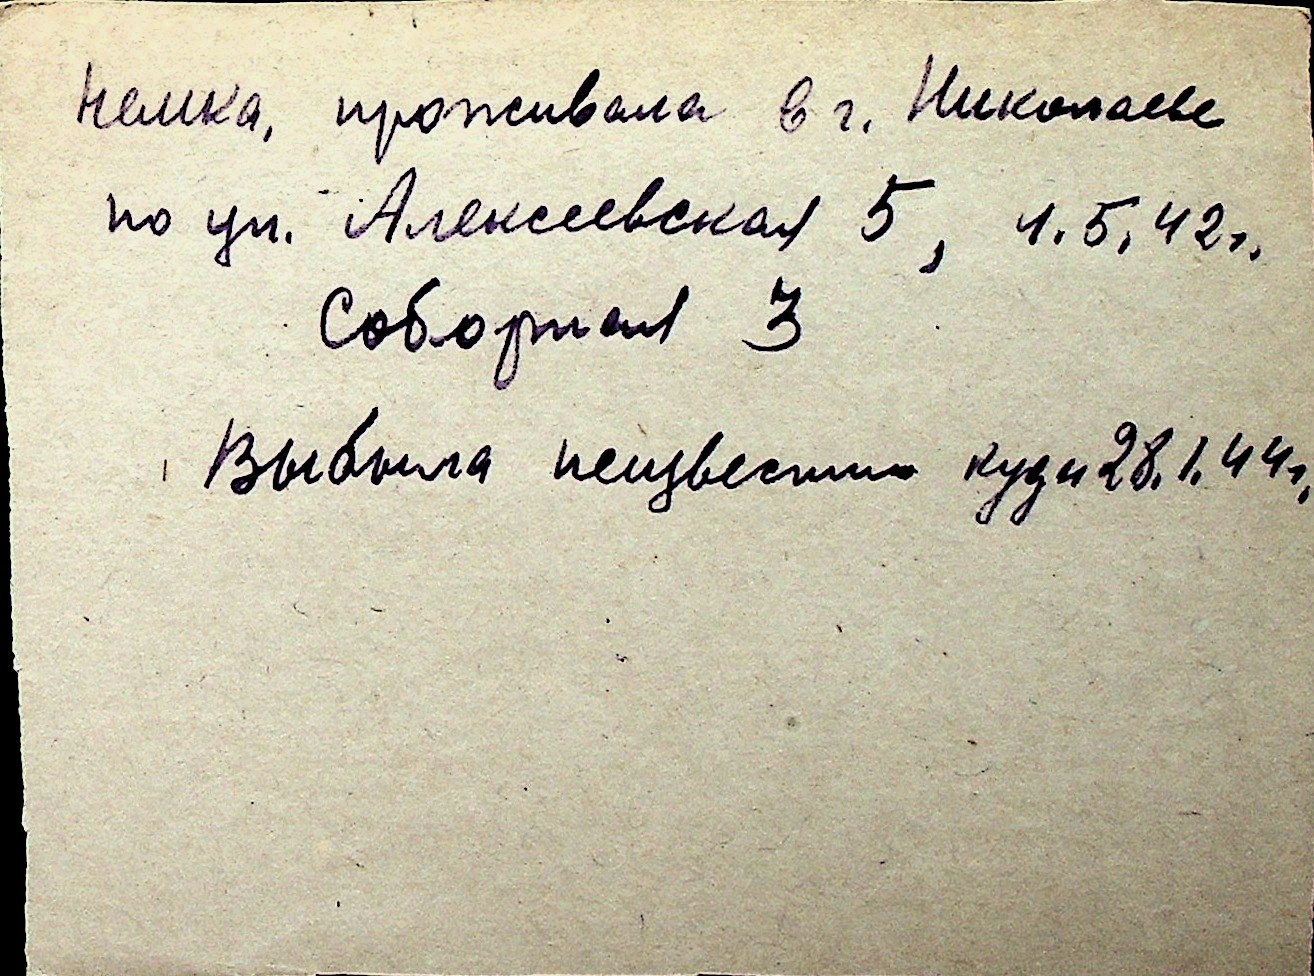 немка, проживала в г. Николаеве
по ул. Алексеевская 5, 1.5.42г.
Соборная 3
Выбыла неизвестно куда 28.1.44г.